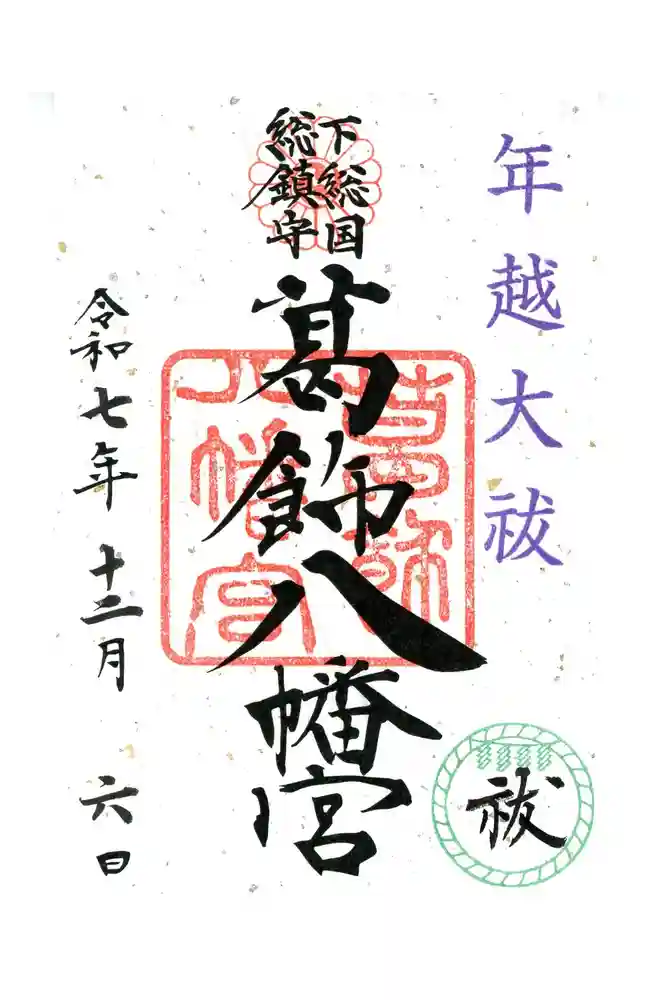 年越大祓
祓
下総国
総鎮守
葛飾八幡宮
葛飾
八幡宮
令和七年十二月六日